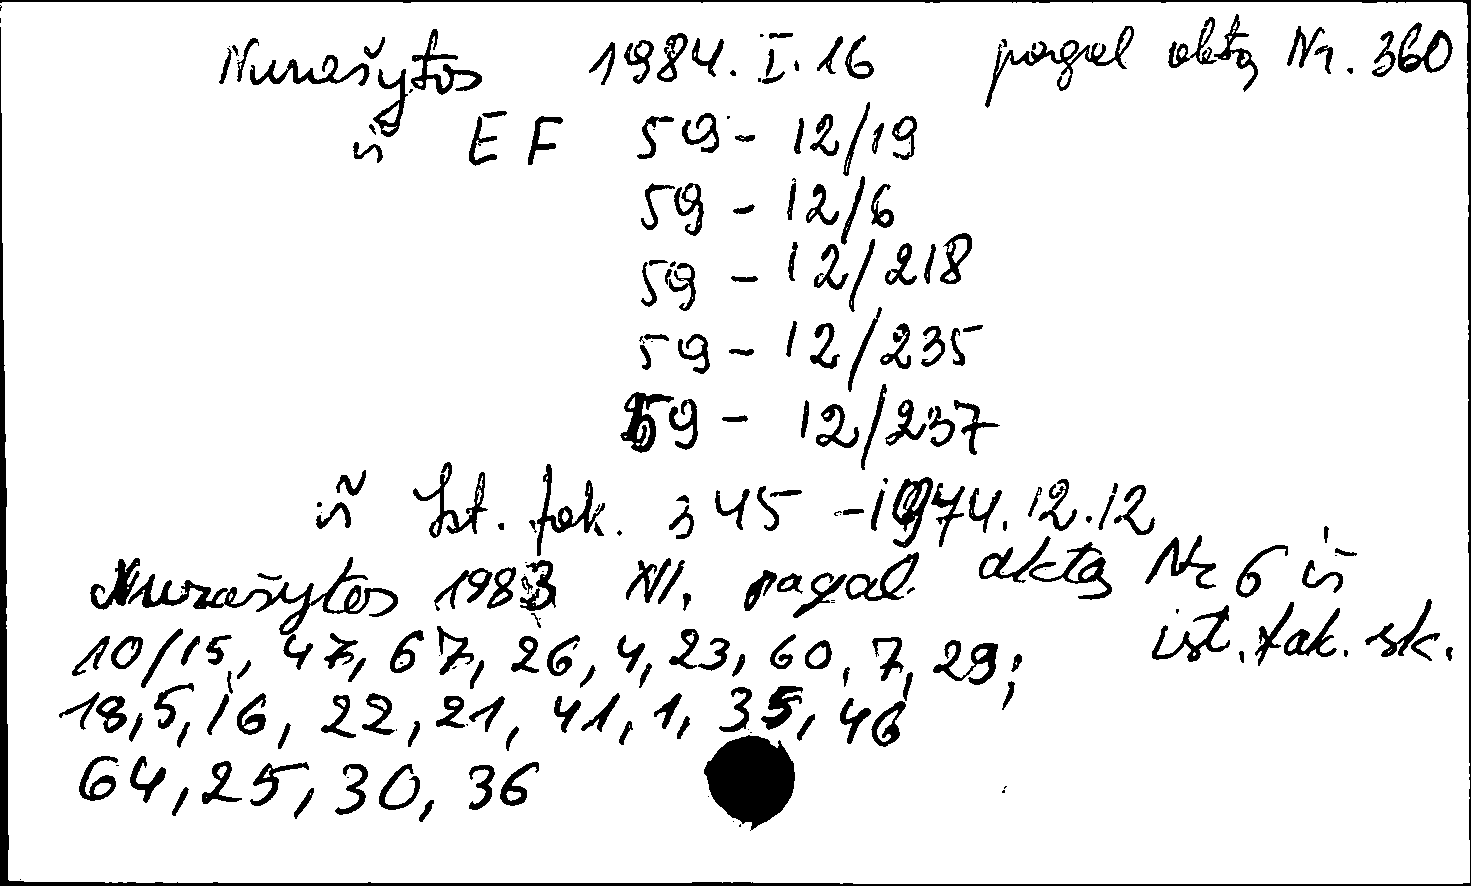 Nurašytos 1984.I.16 pagal aktą Nr. 360
iš EF 59 - 12/19
59 - 12/6
59 - 12/218
59 - 12/235
59 - 12/237
iš Ist. fak. 345 - 1974.12.12
Nurašytos 1983 XII. pagal aktą Nr 6 iš
ist. fak. sk.
10/15, 47, 67, 26, 4, 23, 60, 7, 29;
18, 5, 16, 22, 21, 41, 1, 35, 46
64, 25, 30, 36